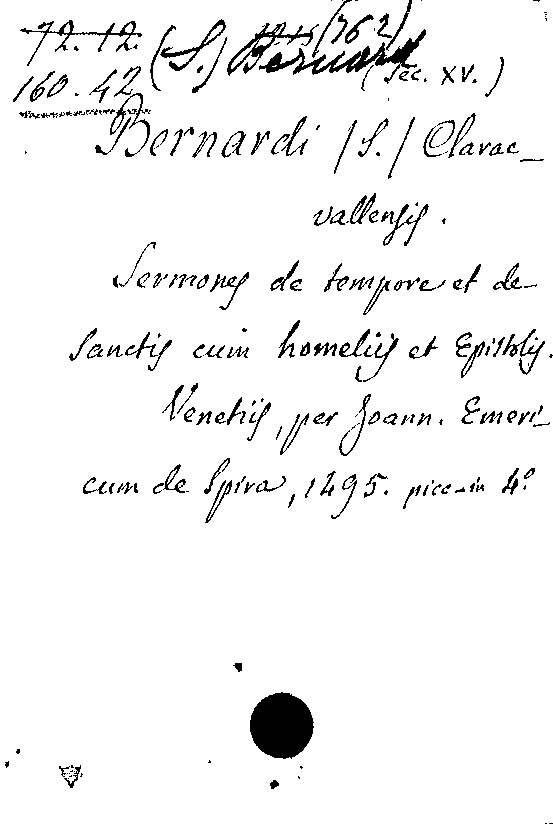 72. 12. (762)
(S.) Bernard
160. 42 (Sec. XV.)
Bernardi (S.) Clarac-
vallensis.
Sermones de tempore et de
Sanctis cum homeliis et Epistolis.
Venetiis, per Joann. Emeri-
cum de Spira, 1495. picc-in 4º